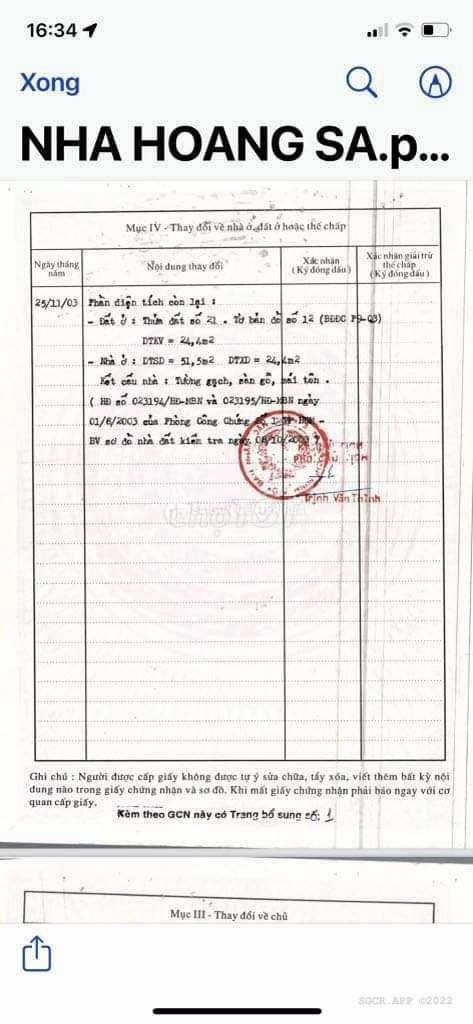 16:34
Xong
NHA HOANG SA.p...
Mục IV - Thay đổi về nhà ở, đất ở hoặc thế chấp
Ngày tháng năm
Nội dung thay đổi
Xác nhận
(Ký đóng dấu)
Xác nhận giải trừ
thế chấp
(Ký đóng dấu)
25/11/03
Phần diện tích còn lại :
- Đất ở : Thửa đất số 21 . Tờ bản đồ số 12 (BĐĐC P9-Q3)
DTKV = 24,4m2
- Nhà ở : DTSD = 51,5m2 DTXD = 24,4m2
Kết cấu nhà : Tường gạch, sàn gỗ, mái tôn .
( HĐ số 023194/HĐ-MBN và 023195/HĐ-MBN ngày
01/8/2003 của Phòng Công Chứng số 1
BV sơ đồ nhà đất kiểm tra ngày 08/10/2003
Trịnh Văn Thình
chợTỐT
Ghi chú : Người được cấp giấy không được tự ý sửa chữa, tẩy xóa, viết thêm bất kỳ nội
dung nào trong giấy chứng nhận và sơ đồ. Khi mất giấy chứng nhận phải báo ngay với cơ
quan cấp giấy.
Kèm theo GCN này có Trang bổ sung số: 1
Mục III - Thay đổi về chủ
SGCR.APP ©2022